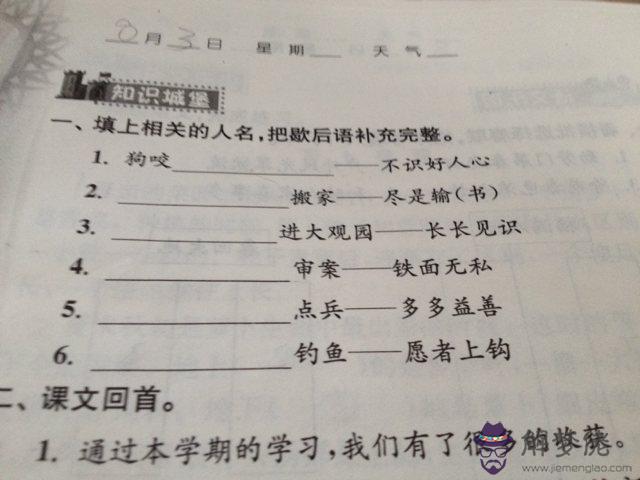 8月3日 星期____天气____
知识城堡
一、填上相关的人名,把歇后语补充完整。
1. 狗咬____________——不识好人心
2. ____________搬家——尽是输(书)
3. ____________进大观园——长长见识
4. ____________审案——铁面无私
5. ____________点兵——多多益善
6. ____________钓鱼——愿者上钩
二、课文回首。
1. 通过本学期的学习,我们有了很多的收获。
解梦佬
www.jiemenglao.com